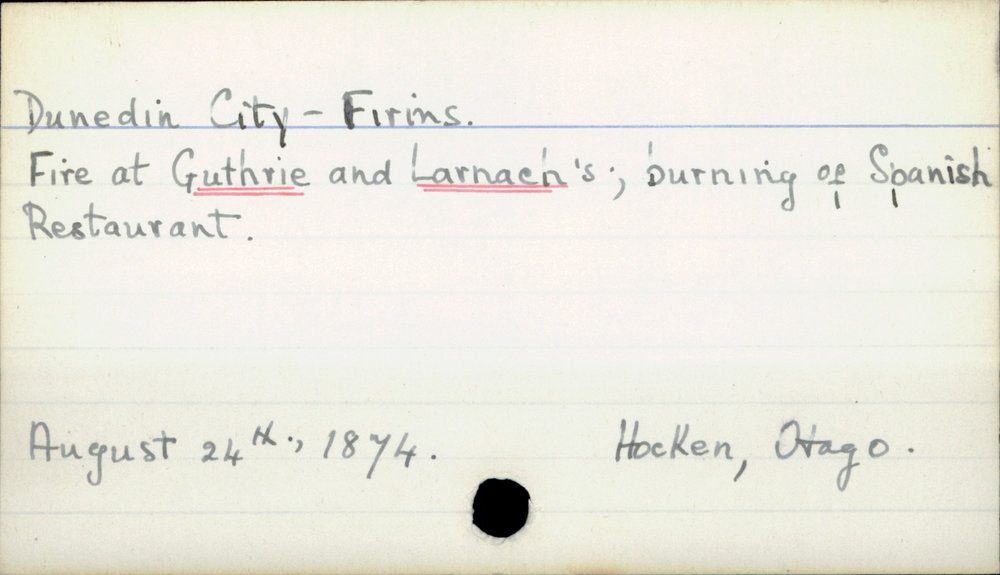 Dunedin City - Firms.
Fire at Guthrie and Larnach's; burning of Spanish
Restaurant.
August 24th., 1874.
Hocken, Otago.